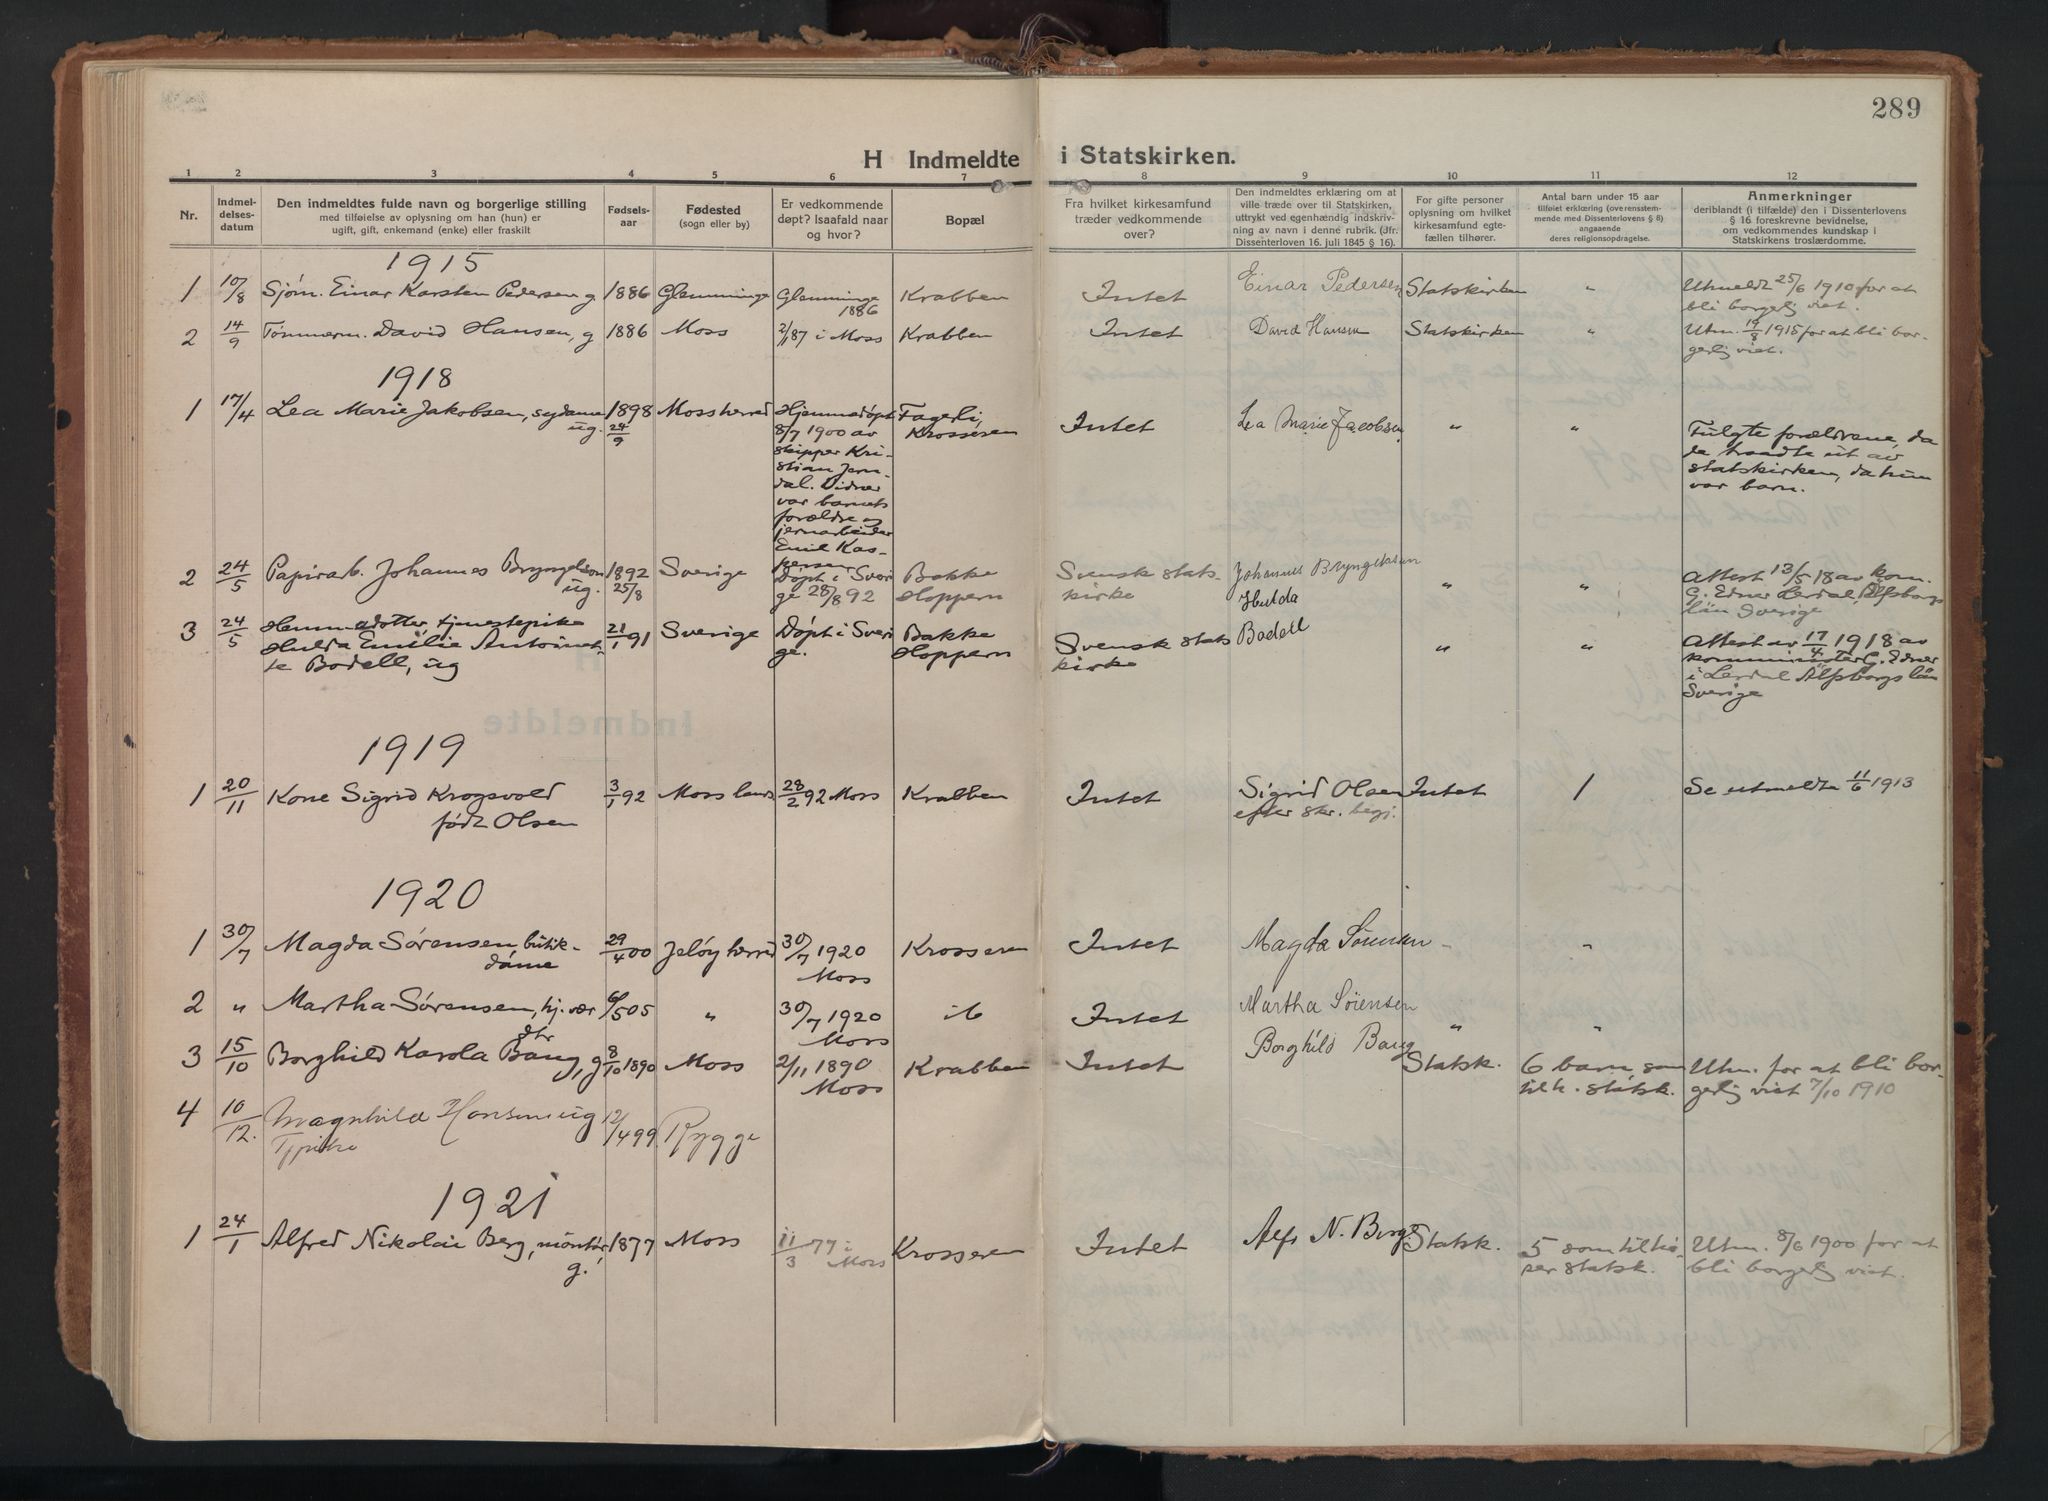 289
H Indmeldte i Statskirken.
1 2 3 4 5 6 7 8 9 10 11 12
Nr.
Indmel-
delses-
datum
Den indmeldtes fulde navn og borgerlige stilling
med tilføielse av oplysning om han (hun) er
ugift, gift, enkemand (enke) eller fraskilt
Fødsels-
aar
Fødested
(sogn eller by)
Er vedkommende
døpt? Isaafald naar
og hvor?
Bopæl
Fra hvilket kirkesamfund
træder vedkommende
over?
Den indmeldtes erklæring om at
ville træde over til Statskirken,
uttrykt ved egenhændig indskriv-
ning av navn i denne rubrik. (Jfr.
Dissenterloven 16. juli 1845 § 16).
For gifte personer
oplysning om hvilket
kirkesamfund egte-
fællen tilhører.
Antal barn under 15 aar
tilføiet erklæring (overensstem-
mende med Dissenterlovens § 8)
angaaende
deres religionsopdragelse.
Anmerkninger
deriblandt (i tilfælde) den i Dissenterlovens
§ 16 foreskrevne bevidnelse,
om vedkommendes kundskap i
Statskirkens troslærdomme.
1915
1 10/8 Sjøm. Einar Karsten Pedersen g 1886 Glemminge Glemminge 1886 Krabben Intet Einar Pedersen Statskirken " Utmeldt 25/6 1910 for at
bli borgerlig viet.
2 14/9 Tømmerm. David Hansen, g 1886 Moss 2/1 87 i Moss Krabben Intet David Hansen Statskirken " Utm. 19/8 1915 for at bli bor-
gerlig viet.
1918
1 17/4 Lea Marie Jakobsen, sydame
ug. 1898
24/9 Moss herred Hjemmedøpt
8/7 1900 av
skipper Kri-
stian Jern-
dal. Vidner
var barnets
forældre og
jernarbeider
Emil Kas-
persen Fagerli,
Krosseren Intet Lea Marie Jacobsen " " Fulgte forældrene, da
de traadte ut av
statskirken, da hun
var barn.
2 24/5 Papirarb. Johannes Bryngelson
ug. 1892
25/8 Sverige Døpt i Sveri
ge 28/8 92 Bakke
Hoppern Svensk stats-
kirke Johannes Bryngelsson " " Attest 13/5 18 av kom.
G. Edner Lerdal, Elfsborgs
län Sverige
3 24/5 Hemmadotter, tjenestepike
Hulda Emilie Antoinet-
te Bodell, ug 21/1 91 Sverige Døpt i Sveri
ge. Bakke
Hoppern Svensk stats
kirke Hulda
Bodell " " Attest av 17/4 1918 av
komminister G. Edner
i Lerdal Älfsborgs län
Sverige
1919
1 20/11 Kone Sigrid Krogsvold
født Olsen 3/1 92 Moss lands 28/2 92 Moss Krabben Intet Sigrid Olsen
efter skr. begj. Intet 1 Se utmeldte 11/6 1913
1920
1 30/7 Magda Sørensen, butik-
dame 29/4 00 Jeløy herred 30/7 1920
Moss Krosseren Intet Magda Sørensen - "
2 " Martha Sørensen, hj. vær
dtr 6/5 05 " 30/7 1920
Moss ib Intet Martha Sørensen " "
3 15/10 Borghild Karola Bang, g 8/10 1890 Moss 2/11 1890
Moss Krabben Intet Borghild Bang Statsk. 6 barn som
tilh. statsk. Utm. for at bli bor-
gerlig viet 7/10 1910
4 10/12. Magnhild Hansen ug
Tjpike 12/4 99 Rygge
1921
1 24/1 Alfred Nikolai Berg, montør,
g. 1877 Moss 11/3 77 i
Moss Krosseren Intet Alf N. Berg Statsk. 5 som tilhø-
rer statsk. Utm. 8/6 1900 for at
bli borgerlig viet.